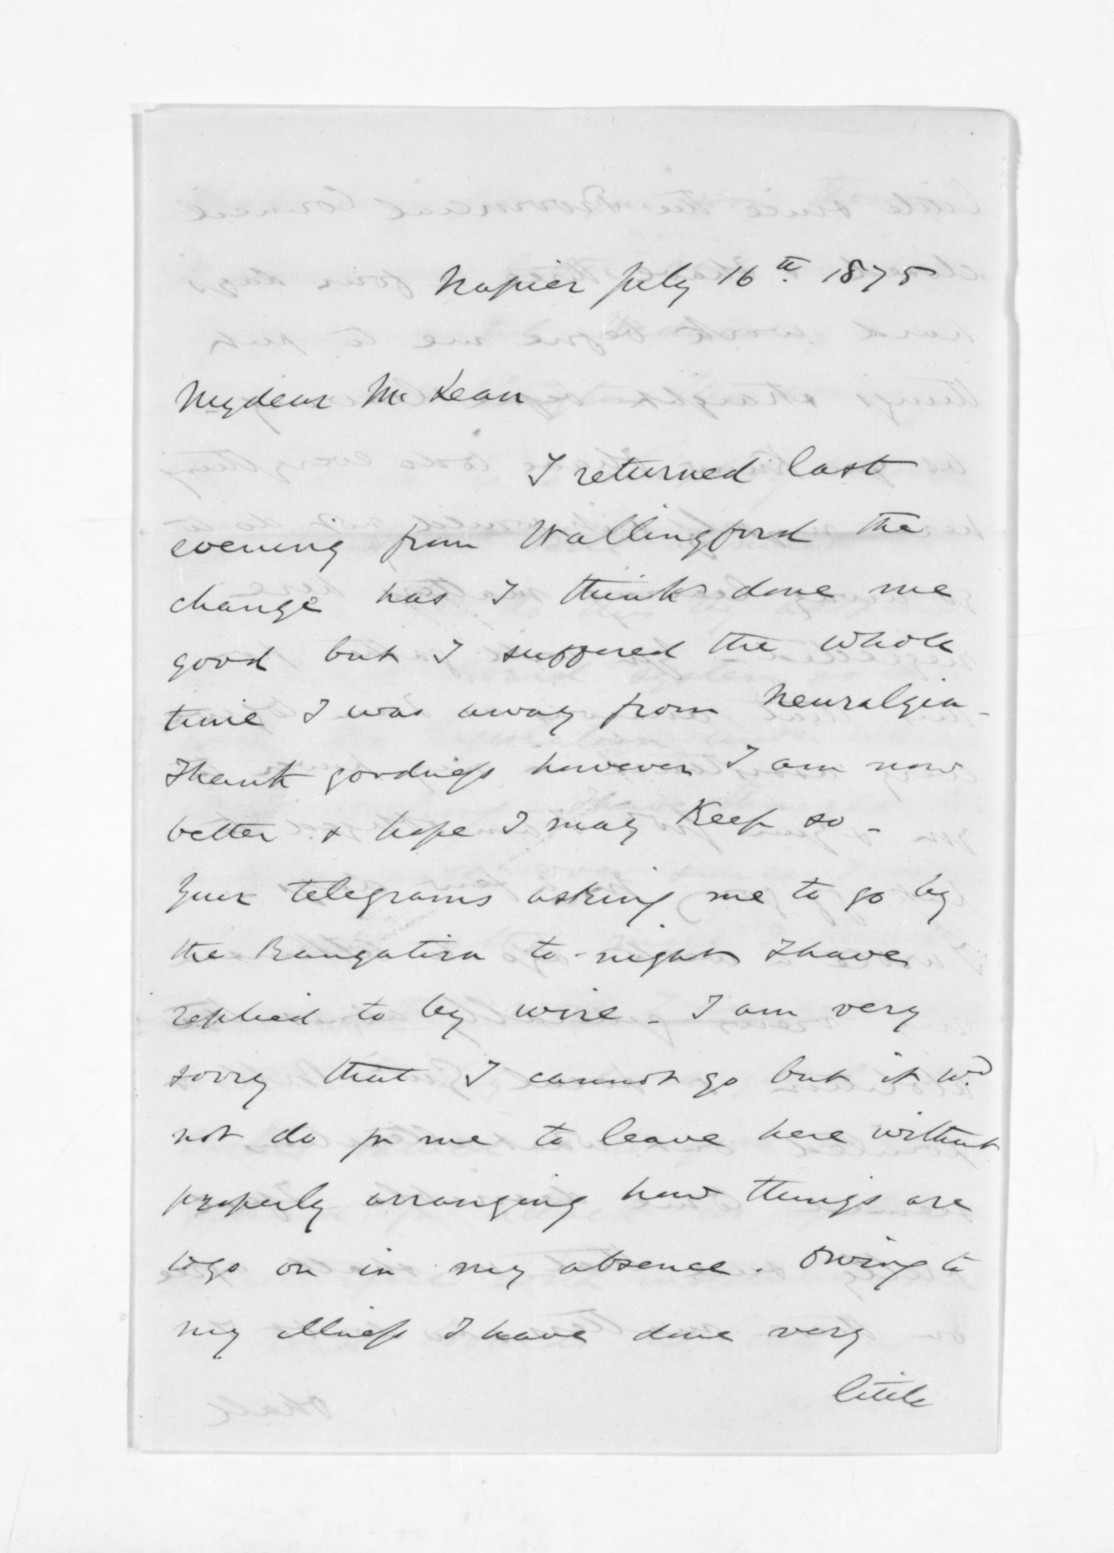 Napier July 16th. 1875
My dear McLean
I returned last
evening from Wallingford the
change has I think done me
good but I suffered the whole
time I was away from Neuralgia -
Thank goodness however I am now
better & hope I may Keep so -
Your telegrams asking me to go by
the Rangatira to-night I have
replied to by wire - I am very
sorry that I cannot go but it wd.
not do for me to leave here without
properly arranging how things are
to go on in my absence. Owing to
my illness I have done very
little